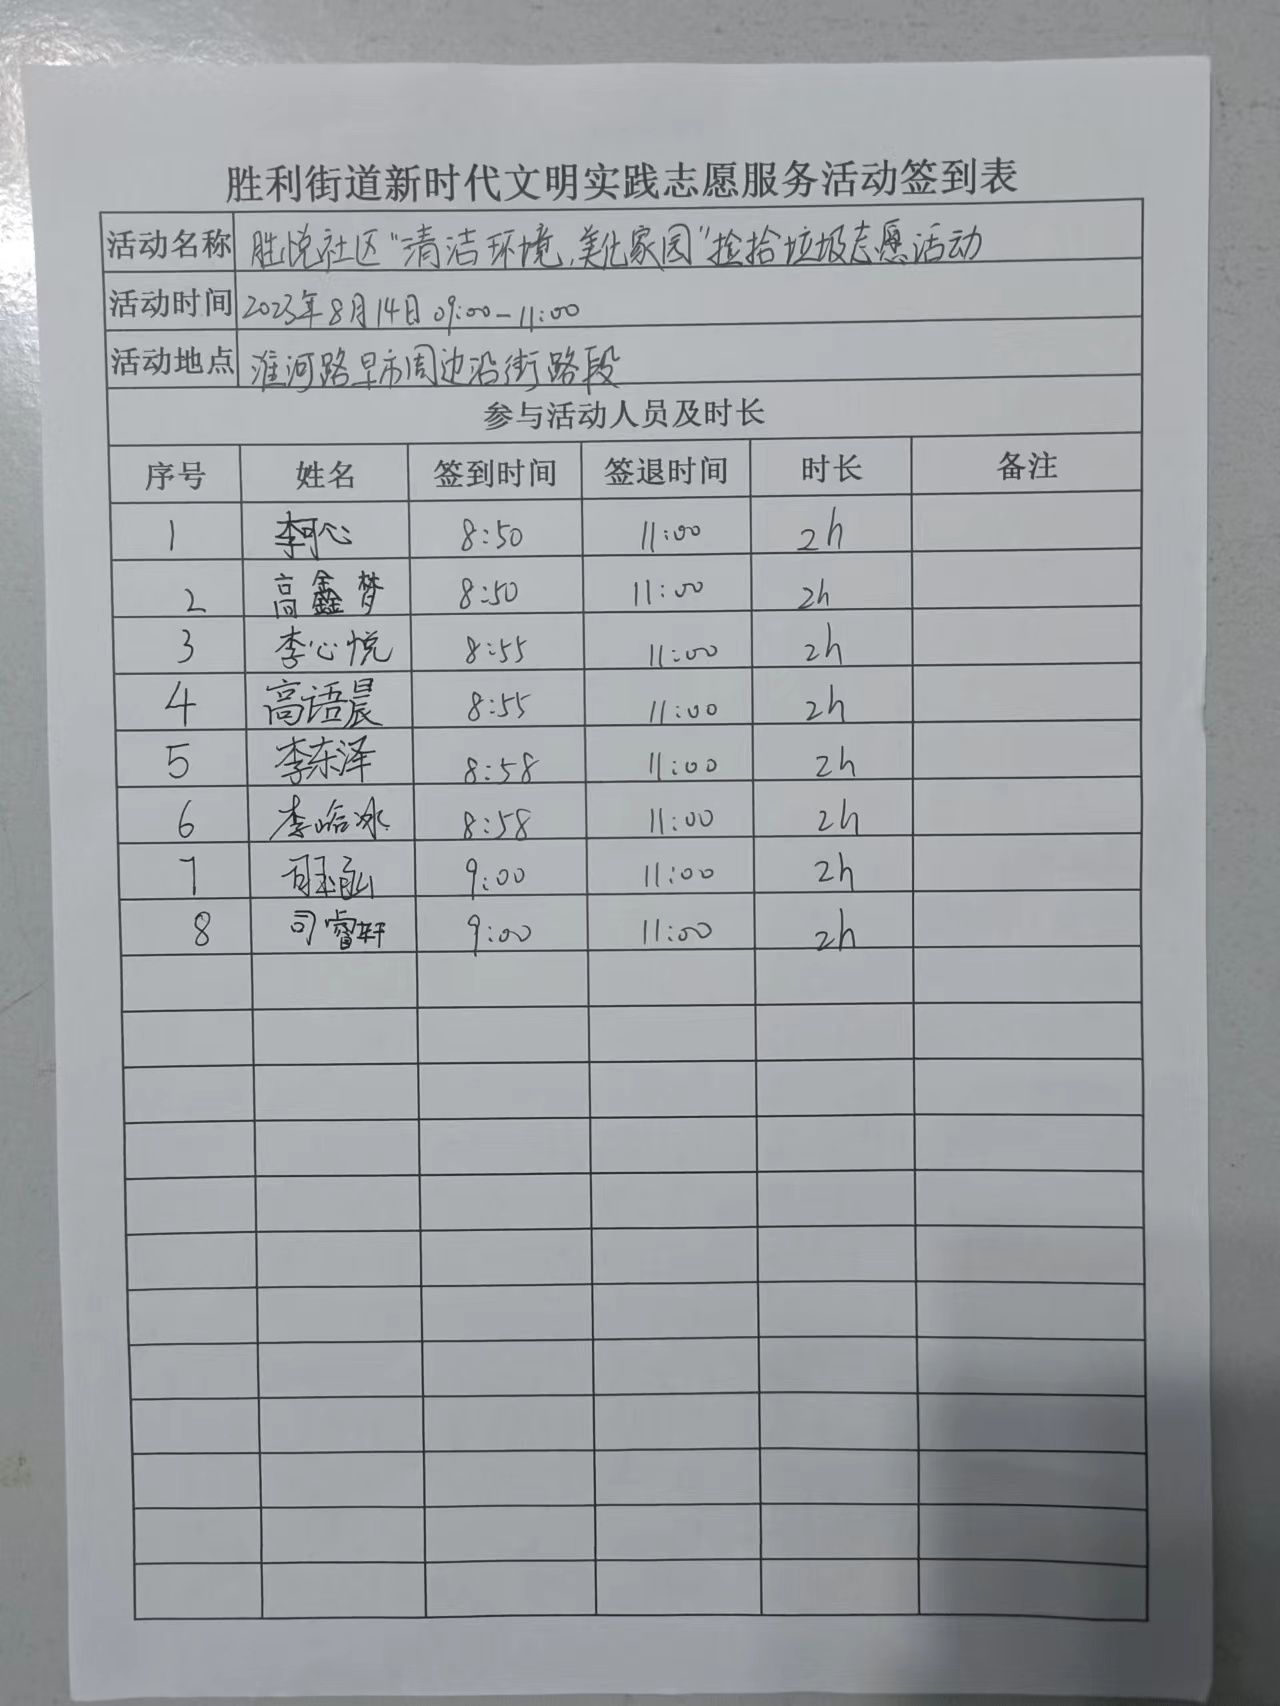 胜利街道新时代文明实践志愿服务活动签到表
活动名称 胜悦社区“清洁环境,美化家园”捡拾垃圾志愿活动
活动时间 2023年8月14日 09:00-11:00
活动地点 淮河路早市周边沿街路段
参与活动人员及时长
序号 姓名 签到时间 签退时间 时长 备注
1 李可心 8:50 11:00 2h
2 高鑫梦 8:50 11:00 2h
3 李心悦 8:55 11:00 2h
4 高语晨 8:55 11:00 2h
5 李东泽 8:58 11:00 2h
6 李晗冰 8:58 11:00 2h
7 9:00 11:00 2h
8 司睿轩 9:00 11:00 2h